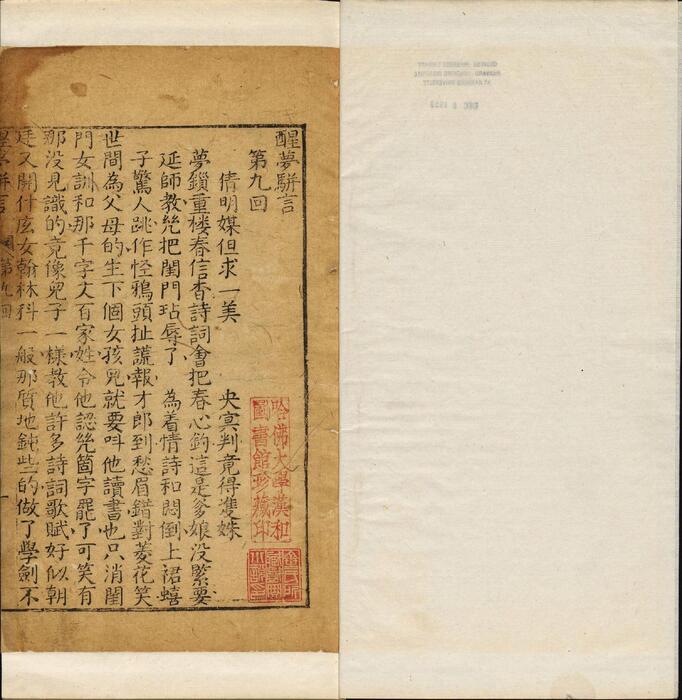 醒夢駢言
第九回
倩明媒但求一美 央冥判竟得雙姝
夢鎖重楼春信杳詩詞會把春心鈎這是爹娘没緊要
延師教㡬把閨門玷辱了 為着情詩和悶倒上裙蟢
子驚人跳作怪鴉頭扯謊報才郎到愁眉錯對菱花笑
世間為父母的生下個女孩兒就要呌他讀書也只消閨
門女訓和那千字文百家姓令他認㡬箇字罷了可笑有
那没見識的竟像兒子一樣教他許多詩詞歌賦好似朝
廷又開什庅女翰林科一般那質地鈍些的做了學劍不
醒夢駢言
第九回
一
哈佛大學漢和
圖書館珍藏印